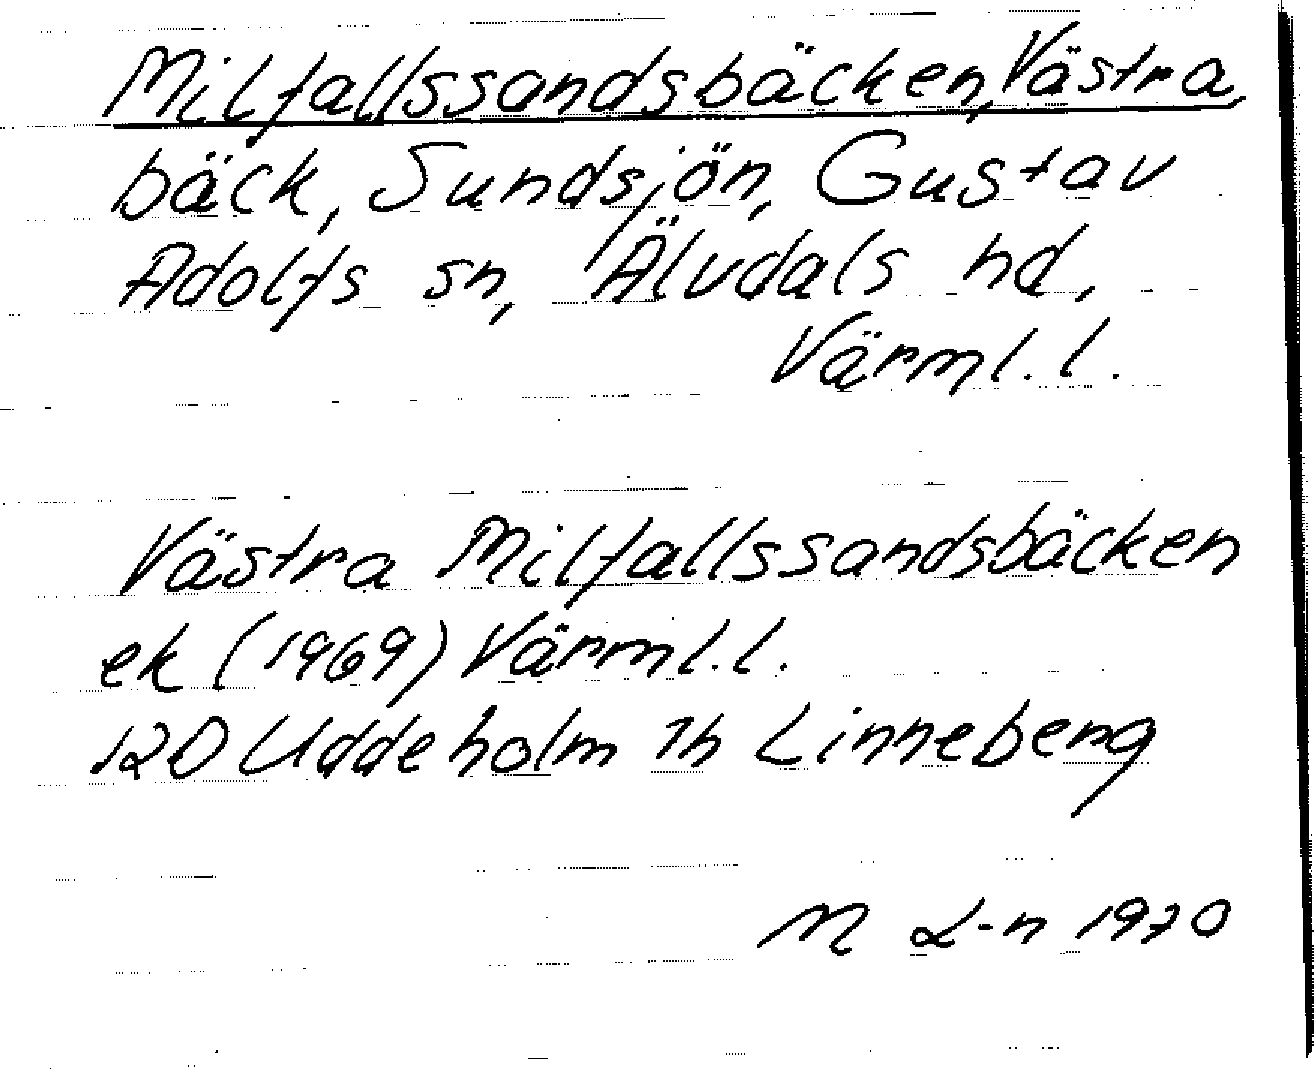 Milfallssandsbäcken, Västra,
bäck, Sundsjön, Gustav
Adolfs sn, Älvdals hd,
Värml. l.
Västra Milfallssandsbäcken
ek (1969) Värml. l.
12D Uddeholm 1h Linneberg
M L-n 1970